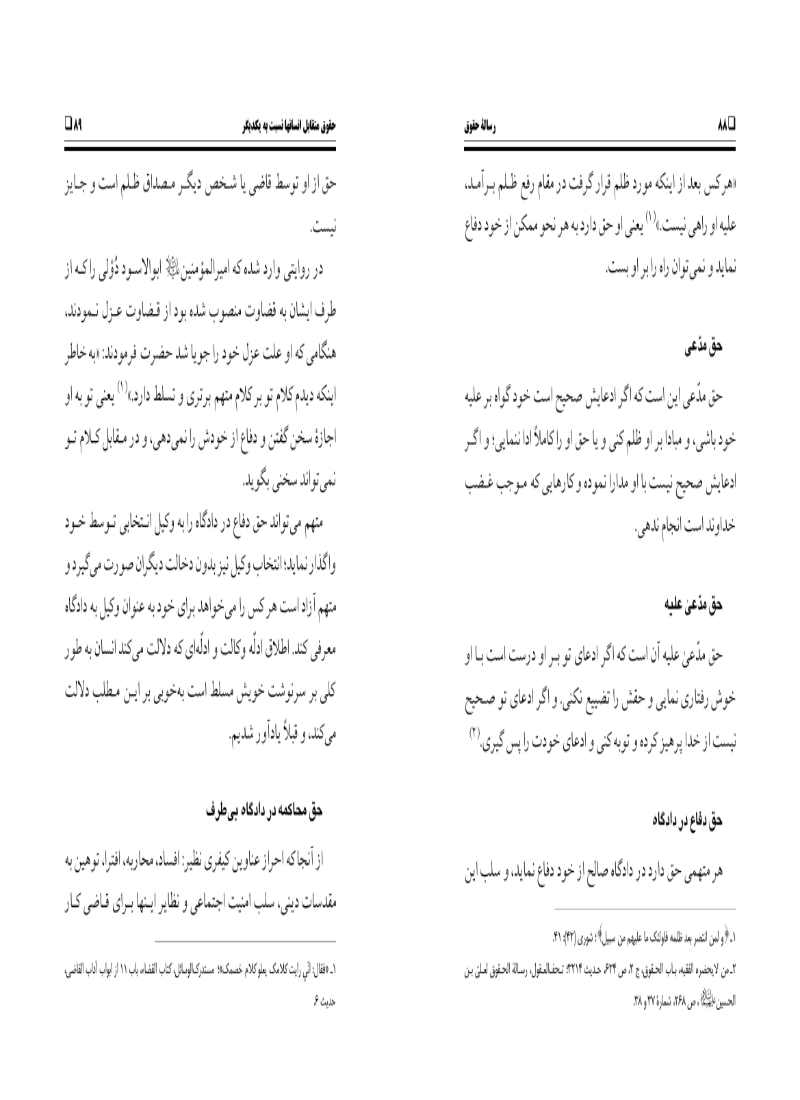 ❏ ۸۸
رسالهٔ حقوق
«هر کس بعد از اینکه مورد ظلم قرار گرفت در مقام رفع ظلم برآمد،
علیه او راهی نیست.»(۱) یعنی او حق دارد به هر نحو ممکن از خود دفاع
نماید و نمی‌توان راه را بر او بست.
حق مدّعی
حق مدّعی این است که اگر ادعایش صحیح است خود گواه بر علیه
خود باشی، و مبادا بر او ظلم کنی و یا حق او را کاملاً ادا ننمایی؛ و اگر
ادعایش صحیح نیست با او مدارا نموده و کارهایی که موجب غضب
خداوند است انجام ندهی.
حق مدّعیٰ علیه
حق مدّعیٰ علیه آن است که اگر ادعای تو بر او درست است با او
خوش رفتاری نمایی و حقش را تضییع نکنی. و اگر ادعای تو صحیح
نیست از خدا پرهیز کرده و توبه کنی و ادعای خودت را پس گیری.(۲)
حق دفاع در دادگاه
هر متهمی حق دارد در دادگاه صالح از خود دفاع نماید، و سلب این
۱ـ ﴿و لمن انتصر بعد ظلمه فاولئک ما علیهم من سبیل﴾؛ شوری (۴۲): ۴۱.
۲ـ من لایحضره الفقیه، باب الحقوق، ج ۲، ص ۶۲۴، حدیث ۳۲۱۴؛ تحف‌العقول، رسالة الحقوق لعلیّ بن
الحسین، ص ۲۶۸، شمارهٔ ۳۷ و ۳۸.
حقوق متقابل انسانها نسبت به یکدیگر
۸۹ ❏
حق از او توسط قاضی یا شخص دیگر مصداق ظلم است و جایز
نیست.
در روایتی وارد شده که امیرالمؤمنین ابوالاسود دُوَلی را که از
طرف ایشان به قضاوت منصوب شده بود از قضاوت عزل نمودند،
هنگامی که او علت عزل خود را جویا شد حضرت فرمودند: «به خاطر
اینکه دیدم کلام تو بر کلام متهم برتری و تسلط دارد.»(۱) یعنی تو به او
اجازهٔ سخن گفتن و دفاع از خودش را نمی‌دهی، و در مقابل کلام تو
نمی‌تواند سخنی بگوید.
متهم می‌تواند حق دفاع در دادگاه را به وکیل انتخابی توسط خود
واگذار نماید؛ انتخاب وکیل نیز بدون دخالت دیگران صورت می‌گیرد و
متهم آزاد است هر کس را می‌خواهد برای خود به عنوان وکیل به دادگاه
معرفی کند. اطلاق ادلّه وکالت و ادلّه‌ای که دلالت می‌کند انسان به طور
کلی بر سرنوشت خویش مسلط است به‌خوبی بر این مطلب دلالت
می‌کند، و قبلاً یادآور شدیم.
حق محاکمه در دادگاه بی‌طرف
از آنجا که احراز عناوین کیفری نظیر: افساد، محاربه، افترا، توهین به
مقدسات دینی، سلب امنیت اجتماعی و نظایر اینها برای قاضی کار
۱ـ «فقال: انّی رایت کلامک یعلو کلام خصمک»؛ مستدرک‌الوسائل، کتاب القضاء، باب ۱۱ از ابواب آداب القاضی،
حدیث ۶.